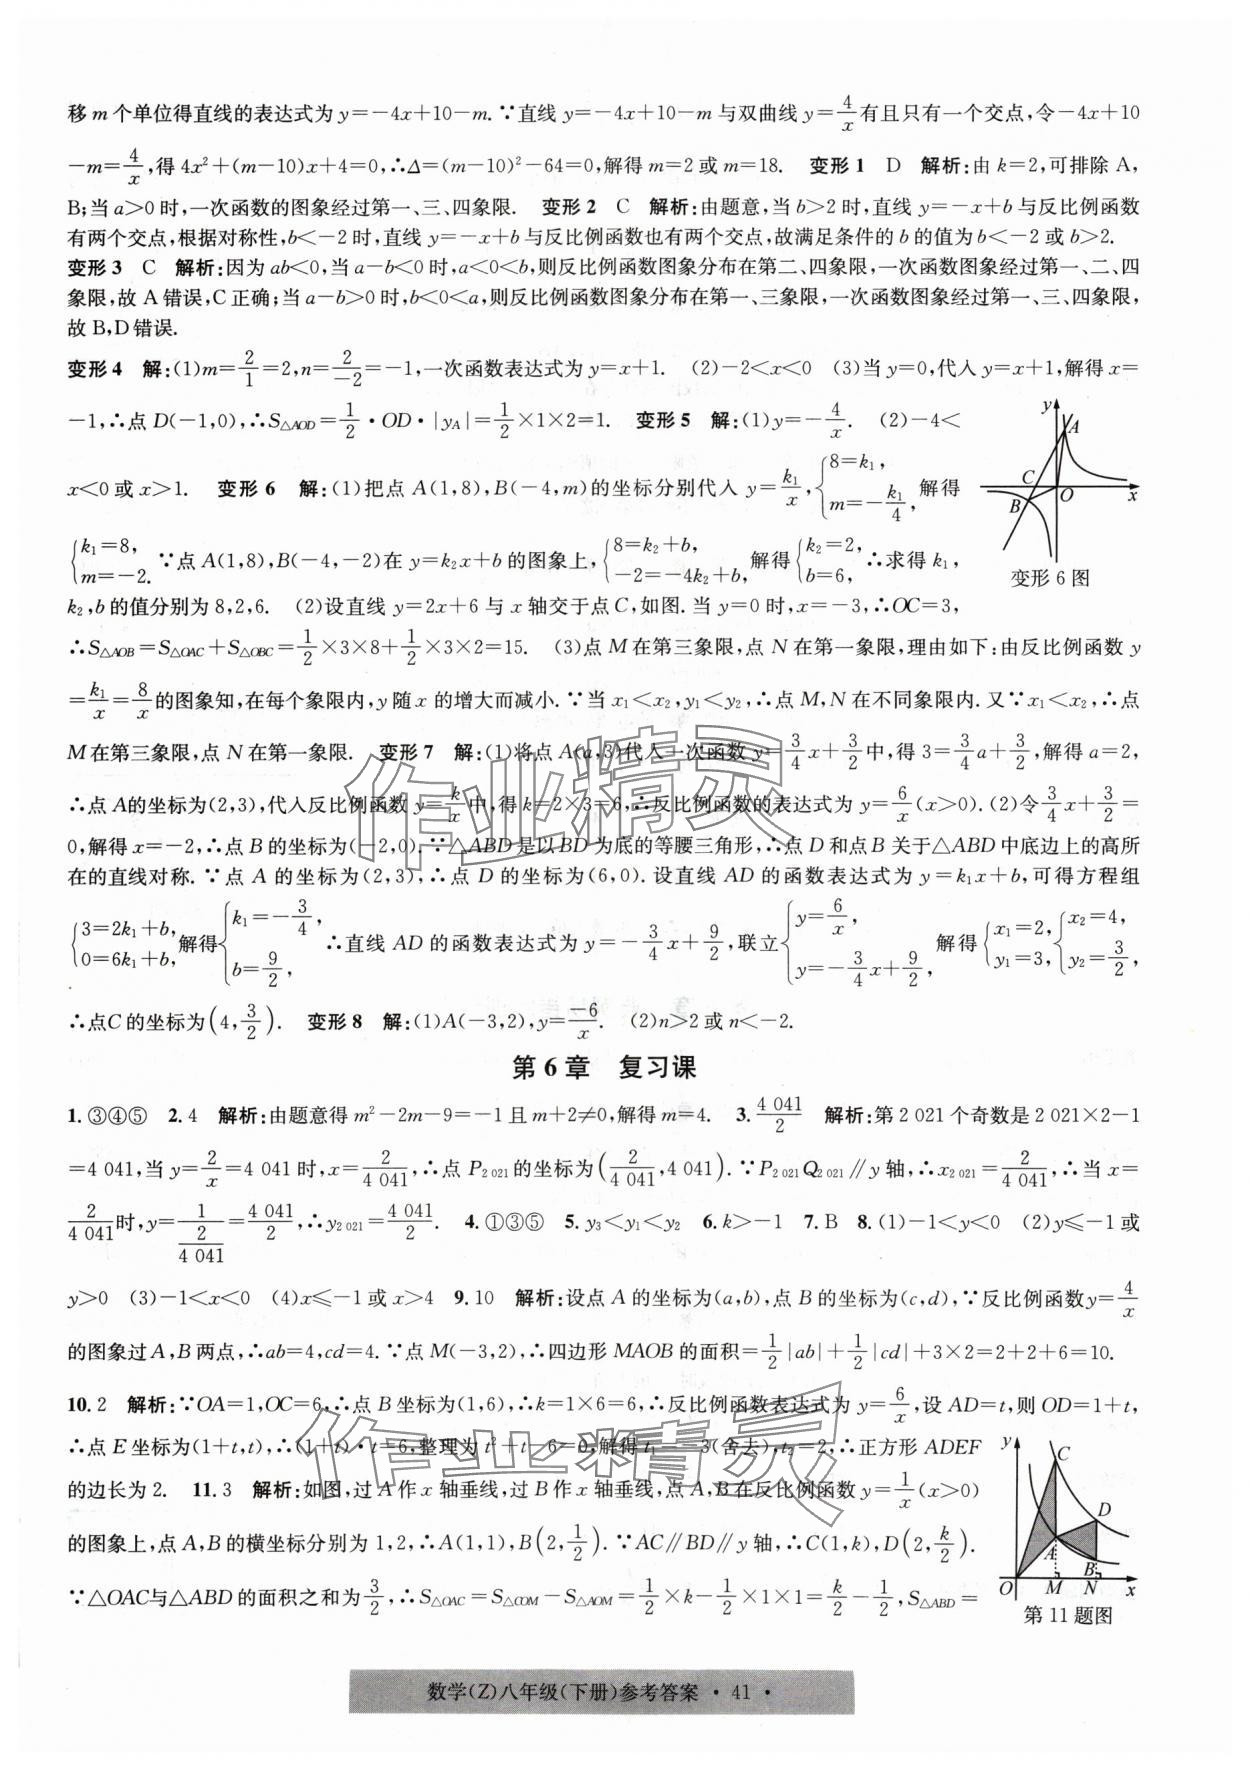 移 m 个单位得直线的表达式为 y=-4x+10-m. ∵直线 y=-4x+10-m 与双曲线 y=4/x 有且只有一个交点,令-4x+10
-m=4/x,得 4x²+(m-10)x+4=0,∴Δ=(m-10)²-64=0,解得 m=2 或 m=18. 变形 1 D 解析:由 k=2,可排除 A,
B;当 a>0 时,一次函数的图象经过第一、三、四象限. 变形 2 C 解析:由题意,当 b>2 时,直线 y=-x+b 与反比例函数
有两个交点,根据对称性,b<-2 时,直线 y=-x+b 与反比例函数也有两个交点,故满足条件的 b 的值为 b<-2 或 b>2.
变形 3 C 解析:因为 ab<0,当 a-b<0 时,a<0<b,则反比例函数图象分布在第二、四象限,一次函数图象经过第一、二、四
象限,故 A 错误,C 正确;当 a-b>0 时,b<0<a,则反比例函数图象分布在第一、三象限,一次函数图象经过第一、三、四象限,
故 B,D 错误.
变形 4 解:(1)m=2/1=2,n=2/-2=-1,一次函数表达式为 y=x+1. (2)-2<x<0 (3)当 y=0,代入 y=x+1,解得 x=
-1,∴点 D(-1,0),∴S△AOD=1/2·OD·|yA|=1/2×1×2=1. 变形 5 解:(1)y=-4/x. (2)-4<
x<0 或 x>1. 变形 6 解:(1)把点 A(1,8),B(-4,m)的坐标分别代入 y=k₁/x,{8=k₁, m=-k₁/4,解得
{k₁=8, m=-2. ∵点 A(1,8),B(-4,-2)在 y=k₂x+b 的图象上,{8=k₂+b, -2=-4k₂+b,解得{k₂=2, b=6,∴求得 k₁,
k₂,b 的值分别为 8,2,6. (2)设直线 y=2x+6 与 x 轴交于点 C,如图. 当 y=0 时,x=-3,∴OC=3,
y A C B O x
变形 6 图
∴S△AOB=S△OAC+S△OBC=1/2×3×8+1/2×3×2=15. (3)点 M 在第三象限,点 N 在第一象限,理由如下:由反比例函数 y
=k₁/x=8/x的图象知,在每个象限内,y 随 x 的增大而减小. ∵当 x₁<x₂,y₁<y₂,∴点 M,N 在不同象限内. 又∵x₁<x₂,∴点
M 在第三象限,点 N 在第一象限. 变形 7 解:(1)将点 A(a,3)代入一次函数 y=3/4x+3/2中,得 3=3/4a+3/2,解得 a=2,
∴点 A的坐标为(2,3),代入反比例函数 y=k/x中,得 k=2×3=6,∴反比例函数的表达式为 y=6/x(x>0). (2)令3/4x+3/2=
0,解得 x=-2,∴点 B 的坐标为(-2,0). ∵△ABD是以 BD 为底的等腰三角形,∴点 D 和点 B 关于△ABD 中底边上的高所
在的直线对称. ∵点 A 的坐标为(2,3),∴点 D 的坐标为(6,0). 设直线 AD 的函数表达式为 y=k₁x+b,可得方程组
{3=2k₁+b, 0=6k₁+b,解得{k₁=-3/4, b=9/2,∴直线 AD 的函数表达式为 y=-3/4x+9/2,联立{y=6/x, y=-3/4x+9/2,解得{x₁=2, y₁=3,{x₂=4, y₂=3/2,
∴点C 的坐标为(4,3/2). 变形 8 解:(1)A(-3,2),y=-6/x. (2)n>2 或 n<-2.
第 6 章 复习课
1.③④⑤ 2.4 解析:由题意得 m²-2m-9=-1 且 m+2≠0,解得 m=4. 3.4 041/2 解析:第 2 021 个奇数是 2 021×2-1
=4 041,当 y=2/x=4 041 时,x=2/4 041,∴点 P₂ ₀₂₁的坐标为(2/4 041,4 041). ∵P₂ ₀₂₁Q₂ ₀₂₁∥y 轴,∴x₂ ₀₂₁=2/4 041,∴当 x=
2/4 041时,y=1/(2/4 041)=4 041/2,∴y₂ ₀₂₁=4 041/2. 4.①③⑤ 5.y₃<y₁<y₂ 6.k>-1 7.B 8.(1)-1<y<0 (2)y≤-1 或
y>0 (3)-1<x<0 (4)x≤-1 或 x>4 9.10 解析:设点 A 的坐标为(a,b),点 B 的坐标为(c,d),∵反比例函数y=4/x
的图象过 A,B 两点,∴ab=4,cd=4. ∵点 M(-3,2),∴四边形 MAOB 的面积=1/2|ab|+1/2|cd|+3×2=2+2+6=10.
10.2 解析:∵OA=1,OC=6,∴点 B 坐标为(1,6),∴k=1×6=6,∴反比例函数表达式为 y=6/x,设 AD=t,则 OD=1+t,
∴点 E 坐标为(1+t,t),∴(1+t)·t=6,整理为 t²+t-6=0,解得 t₁=-3(舍去),t₂=2,∴正方形 ADEF
的边长为 2. 11.3 解析:如图,过 A 作 x 轴垂线,过 B 作 x 轴垂线,点 A,B 在反比例函数 y=1/x(x>0)
的图象上,点 A,B 的横坐标分别为 1,2,∴A(1,1),B(2,1/2). ∵AC∥BD∥y 轴,∴C(1,k),D(2,k/2).
∵△OAC与△ABD 的面积之和为3/2,∴S△OAC=S△COM-S△AOM=1/2×k-1/2×1×1=k/2-1/2,S△ABD=
y C D A B O M N x
第 11 题图
数学(Z)八年级(下册)参考答案 · 41 ·
作业精灵
作业精灵